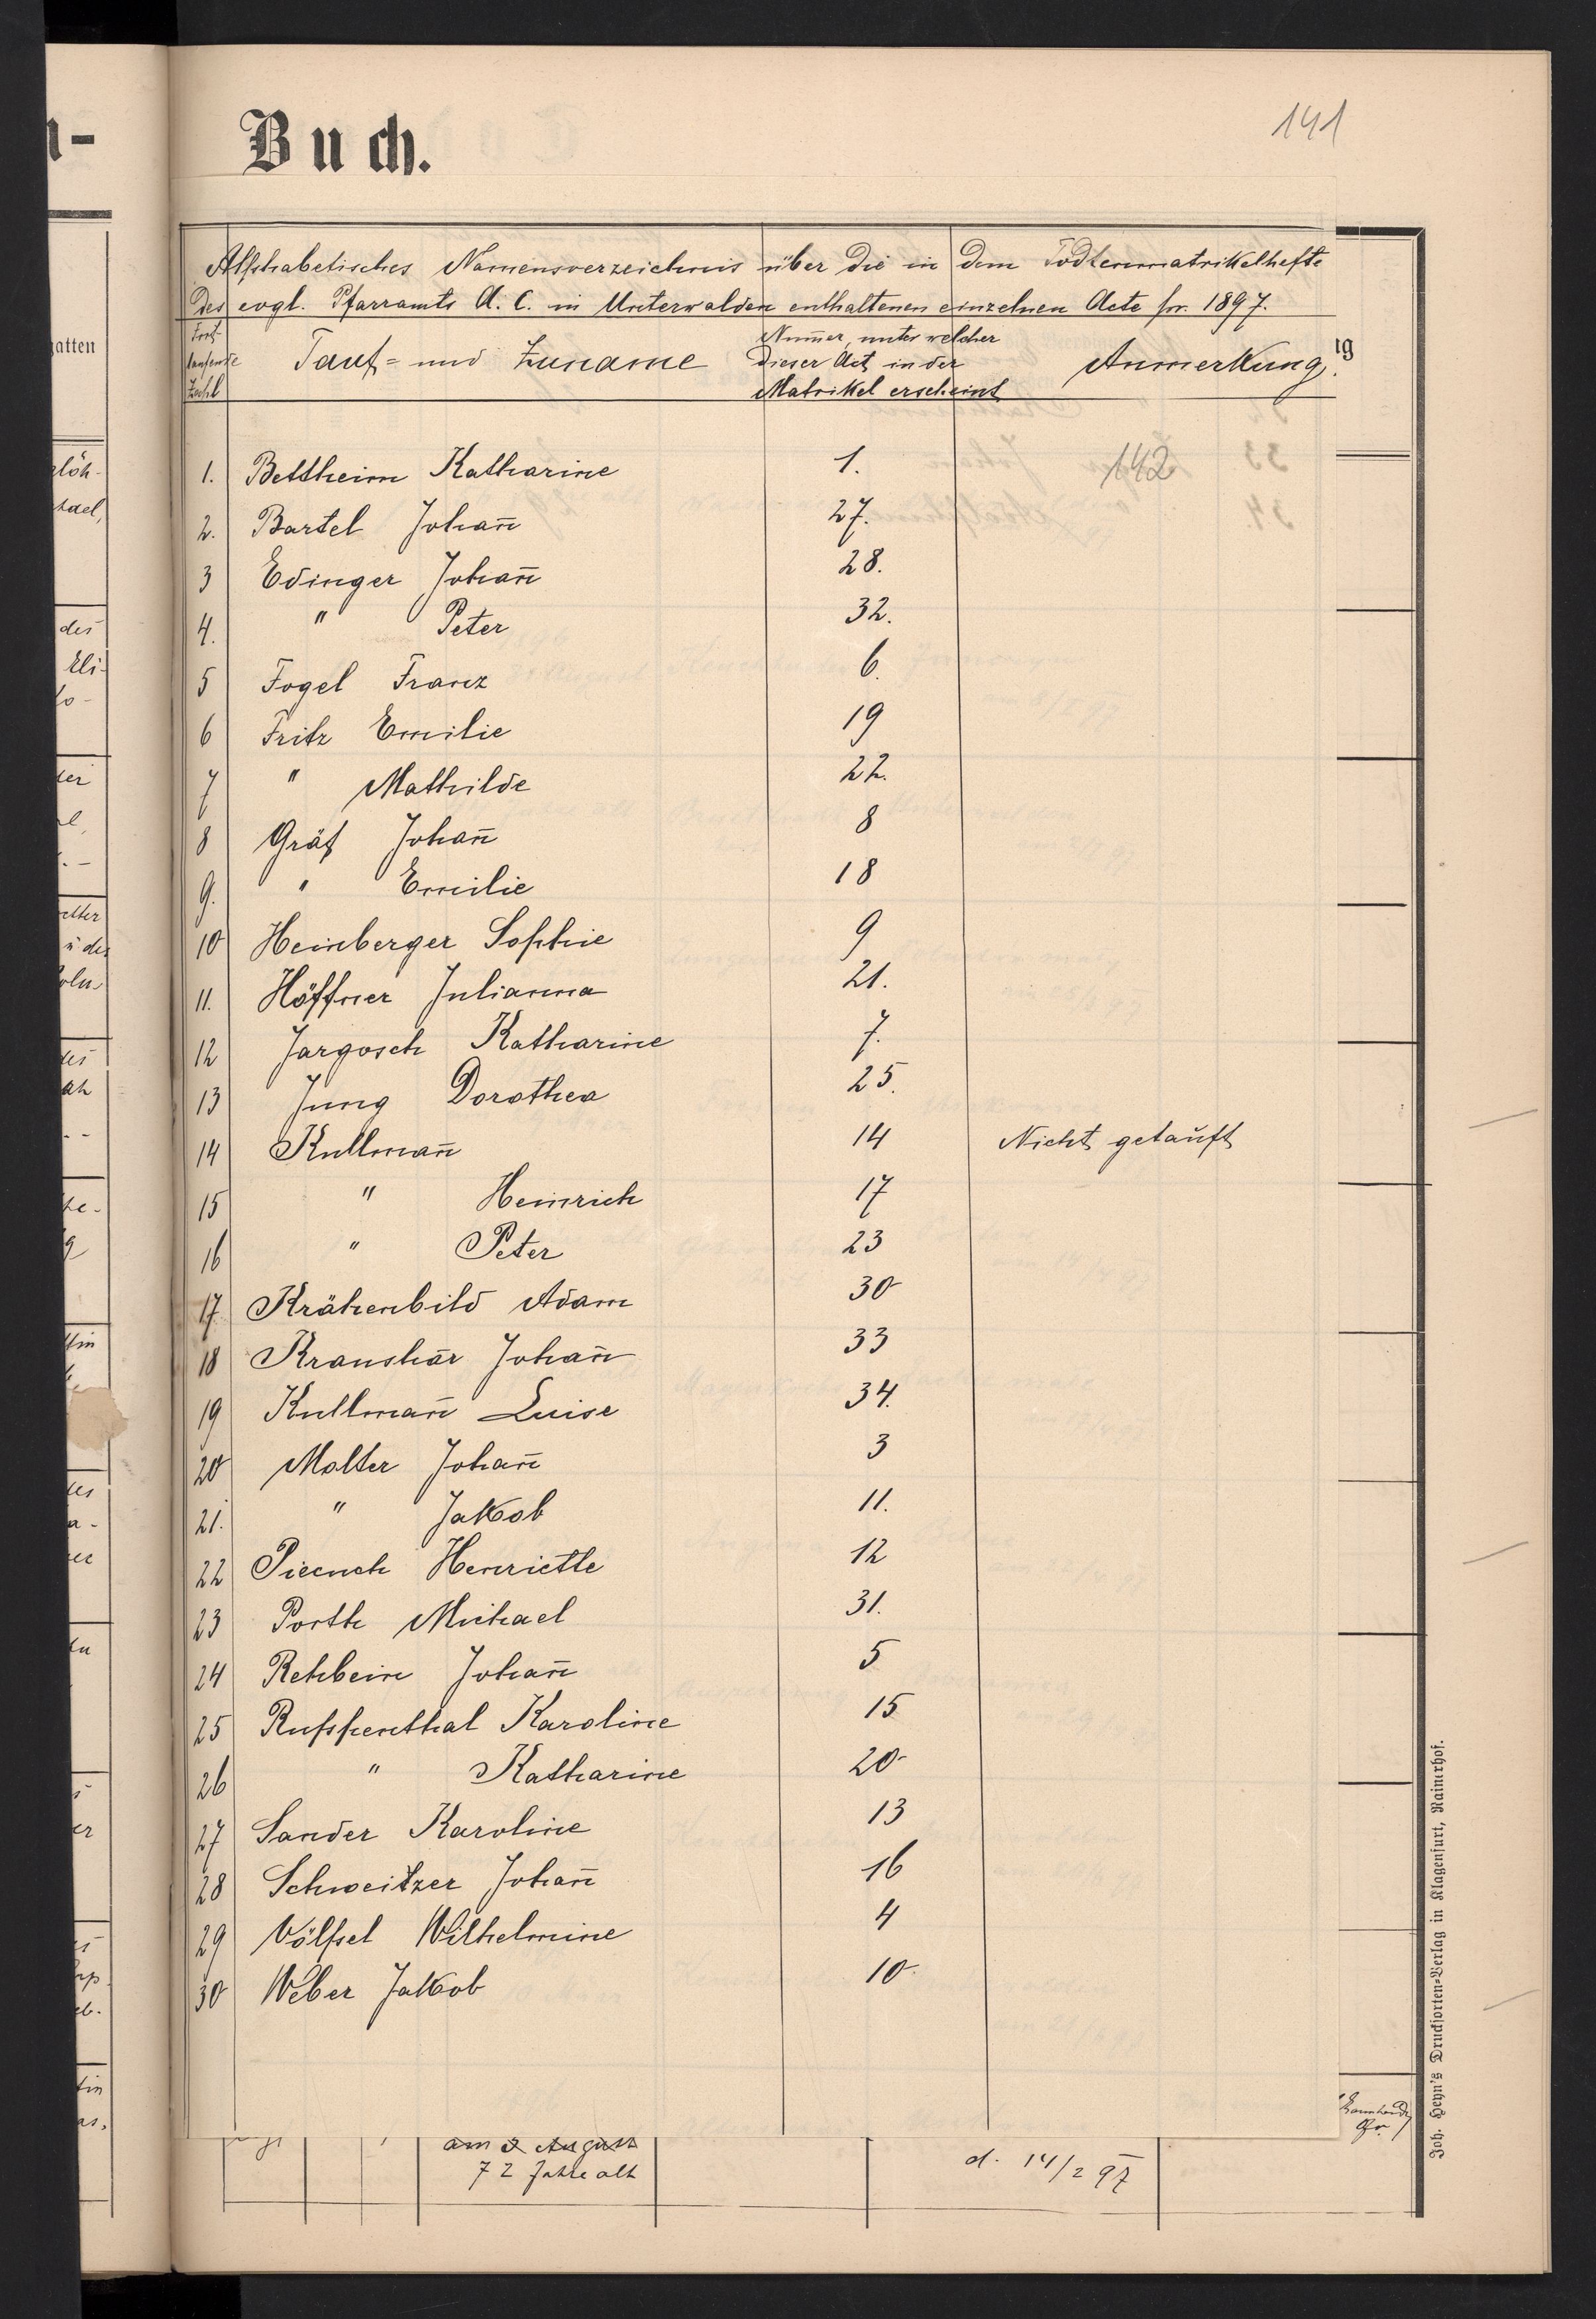 Buch.
141
Alphabetisches Namensverzeichnis über die in dem Todtenmatrikelhefte
des evgl. Pfarramts A. C. in Unterwalden enthaltenen einzelnen Acte pr. 1897.
Fort-
laufende
Zahl
Tauf= und Zuname
Num̄er, unter welcher
dieser Act in der
Matrikel erscheint
Anmerkung.
1. Bettheim Katharine 1. 142
2. Bartel Johan̄ 27.
3 Edinger Johan̄ 28.
4. " Peter 32.
5 Fogel Franz 6.
6 Fritz Emilie 19
7 " Mathilde 22.
8 Gräf Johan̄ 8
9. " Emilie 18
10 Heinberger Sophie 9
11. Höffner Julianna 21.
12 Jargosch Katharine 7.
13 Jung Dorothea 25.
14 Kullman̄ 14 Nicht getauft
15 " Heinrich 17
16 " Peter 23
17 Krähenbild Adam 30
18 Kranshar Johan̄ 33
19 Kullman̄ Luise 34.
20 Molter Johan̄ 3
21. " Jakob 11.
22 Piecuch Henriette 12
23 Porth Michael 31.
24 Rehbein Johan̄ 5
25 Rupphenthal Karoline 15
26 " Katharine 20
27 Sander Karoline 13
28 Schweitzer Johan̄ 16
29 Völpel Wilhelmine 4
30 Weber Jakob 10.
am 2 August
72 Jahre alt
d. 14/2 97
Joh. Heyn's Drucksorten=Verlag in Klagenfurt, Rainerhof.
atten